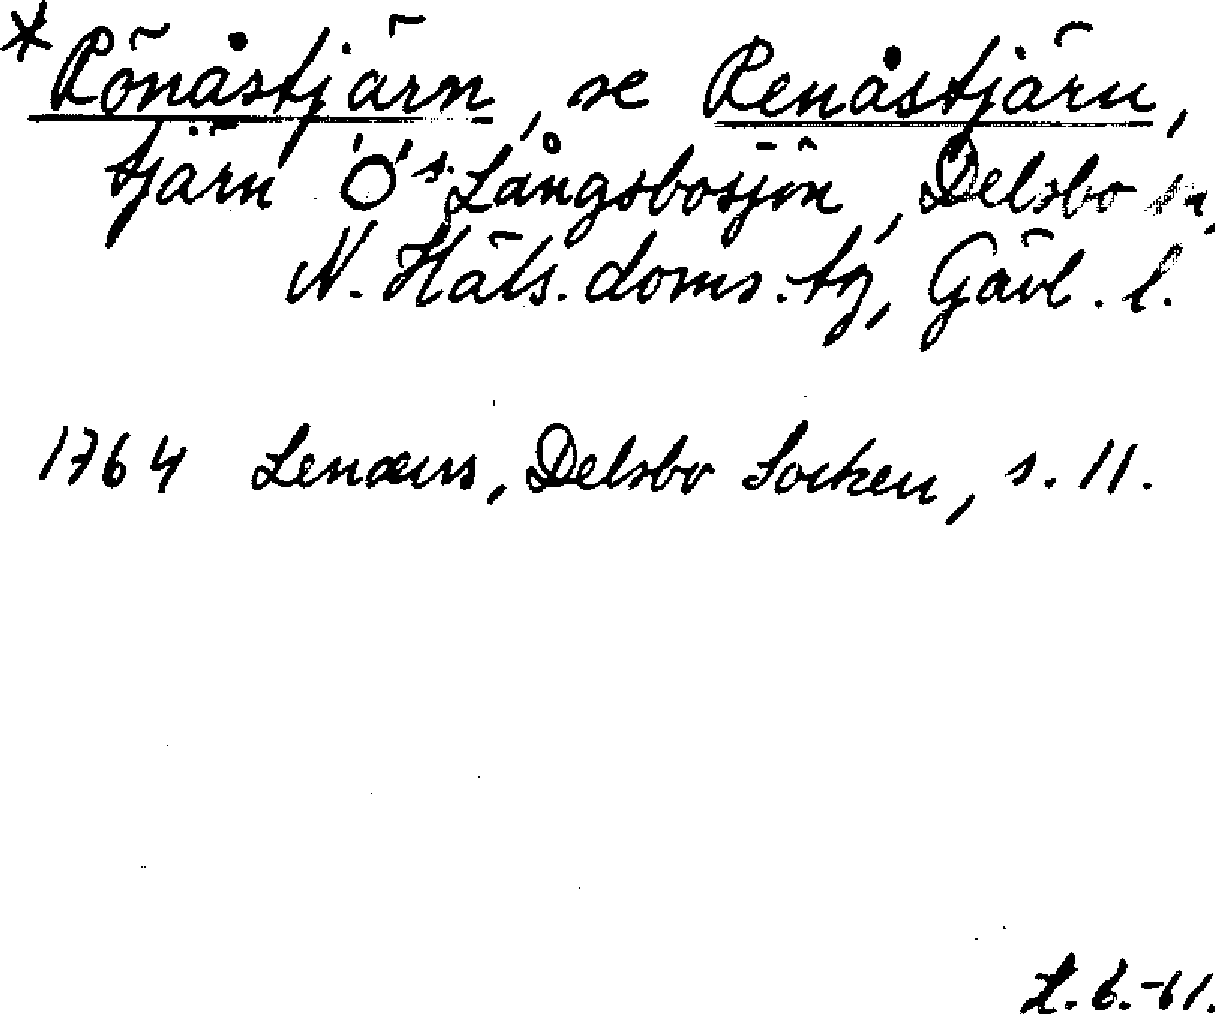 * Rönåstjärn, se Renåstjärn,
tjärn Ö s. Långsbosjön, Delsbo sn,
N. Häls. doms. tg, Gävl. l.
1764 Lenæus, Delsbo Socken, s. 11.
L. b. -61.